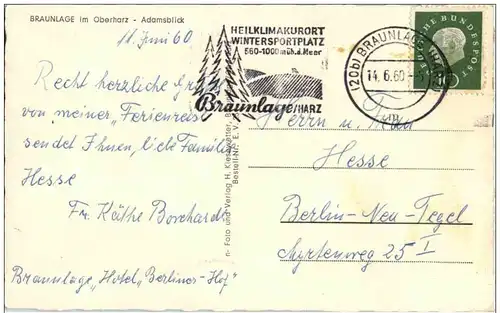 BRAUNLAGE im Oberharz - Adamsblick
11. Juni 60
Recht herzliche Grüße
von meiner "Ferienreise
sendet Ihnen, liebe Familie
Hesse
Fr. Käthe Borchardt
Braunlage, "Hotel "Berliner-Hof"
HEILKLIMAKURORT
WINTERSPORTPLATZ
560-1000 mü.d.Meer
Braunlage/HARZ
(20b) BRAUNLAGE
14.6.60
DEUTSCHE BUNDESPOST
Foto und Verlag H.
Bestell-Nr.
Herrn u. Frau
Hesse
Berlin-Neu-Tegel
Myrtenweg 25 I